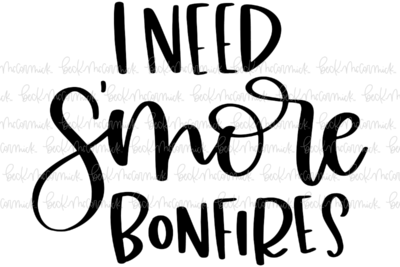 I NEED
S'more
BONFIRES